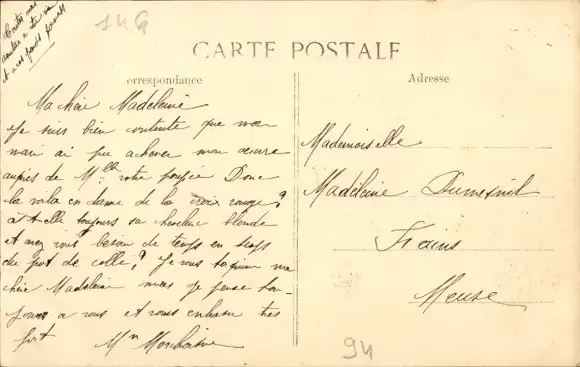 Toutes mes
amitiés à
et à vos grands parents
14G
CARTE POSTALE
orrespondance
Adresse
Ma chère Madeleine
Je suis bien contente que mon
mari ai pu achever mon œuvre
auprès de Mlle votre poupée Donc
la voila en dame de la croix rouge?
a-t-elle toujours sa chevelure blonde
et avez vous besoin de temps en temps
du pot de colle? Je vous taquine ma
chère Madeleine mais je pense tou-
jours a vous et vous embrasse très
fort
Mademoiselle
Madeleine Dumesnil
Meuse
94